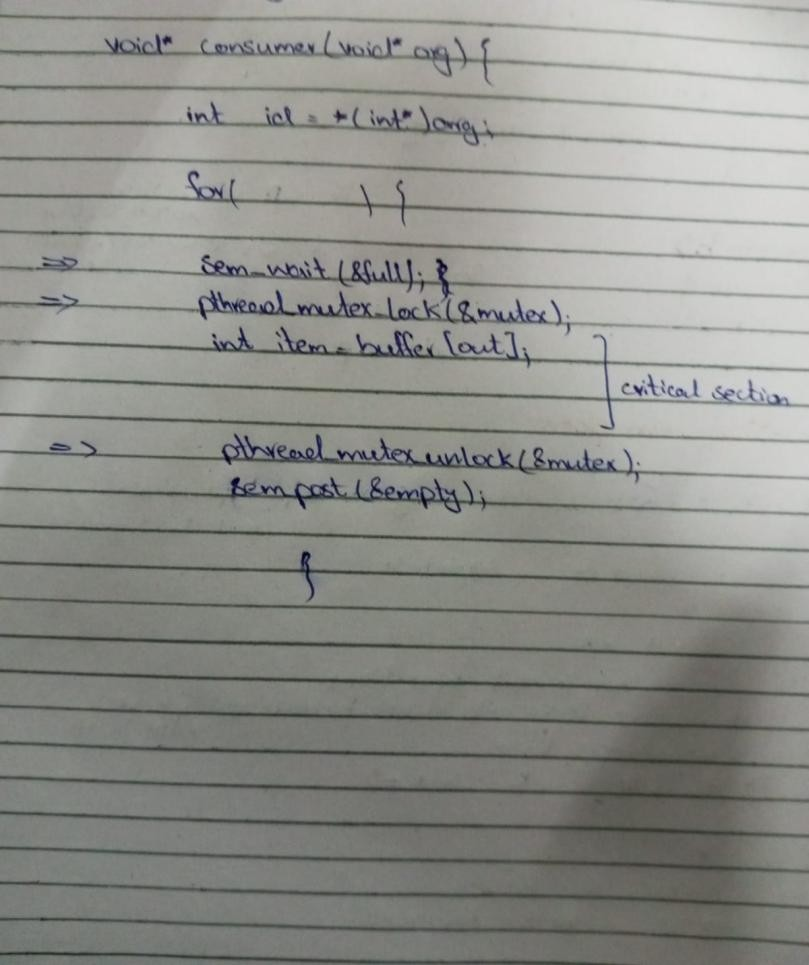 void* consumer(void* arg) {
int id = *(int*)arg;
for(          ) {
=> sem_wait(&full); }
=> pthread_mutex_lock(&mutex);
int item = buffer[out];
] critical section
=> pthread_mutex_unlock(&mutex);
sem_post(&empty);
}